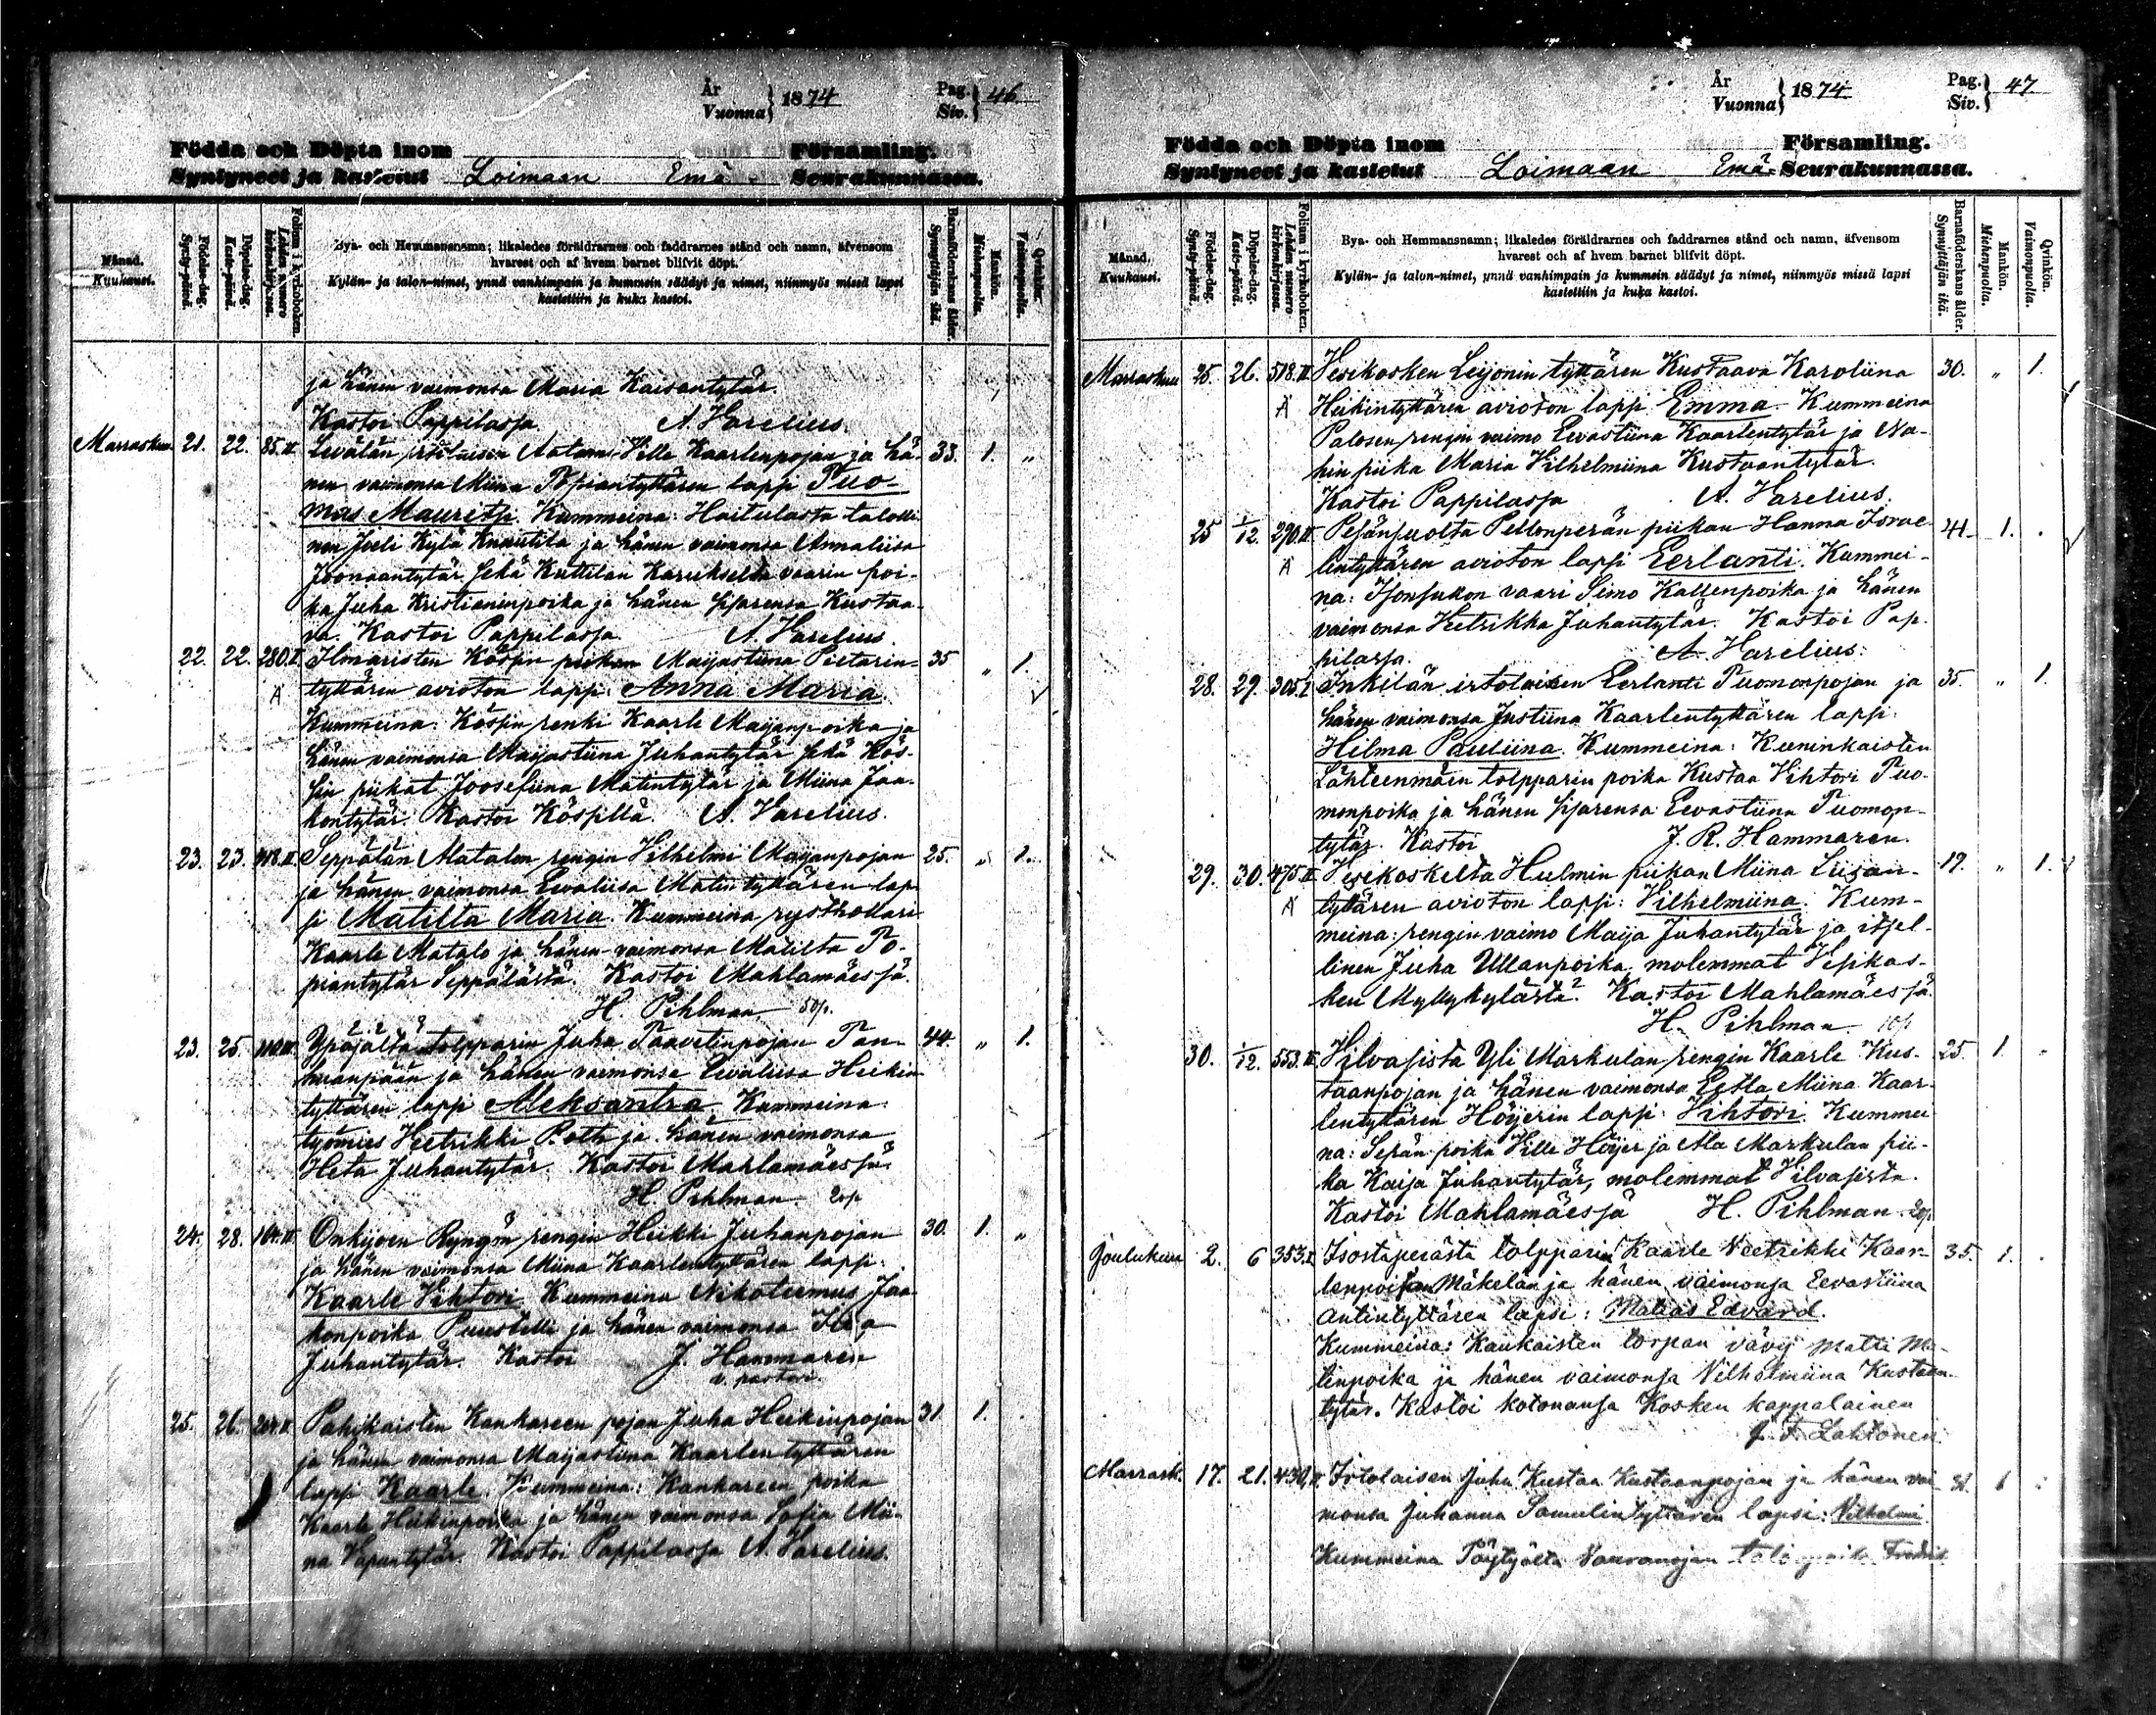 År
Vuonna} 1874
Pag.
Siv.} 46
Födda och Döpta inom Församling.
Syntyneet ja kastetut Loimaan Emä- Seurakunnassa.
Månad.
Kuukausi.
Födelse-dag.
Synty-päivä.
Döpelse-dag.
Kaste-päivä.
Folium i kyrkoboken.
Lehden numero kirkonkirjassa.
Bya- och Hemmansnamn; likaledes föräldrarnes och faddrarnes stånd och namn, äfvensom
hvarest och af hvem barnet blifvit döpt.
Kylän- ja talon-nimet, ynnä vanhimpain ja kummein säädyt ja nimet, niinmyös missä lapsi
kastettiin ja kuka kastoi.
Barnaföderskans ålder.
Synnyttäjän ikä.
Mankön.
Miehenpuolta.
Qvinkön.
Vaimonpuolta.
ja hänen vaimonsa Maria Kaisantytär.
Kastoi Pappilassa A. Varelius.
Marraskuu 21. 22. 85.II Levälän itsellisen Aatami Ville Kaarlenpojan ja hä- 33. 1. "
nen vaimonsa Miina Topiantyttären lapsi Tuo-
mas Mauritz. Kummeina: Haitulasta talolli-
nen Joeli Kylä Knuutila ja hänen vaimonsa Annaliisa
Joonaantytär sekä Kuttilan Karukselta vaarin poi-
ka Juha Kristianinpoika ja hänen sisarensa Kustaa-
va. Kastoi Pappilassa A. Varelius
22. 22. 280.I IlmaristenKöspin piikan Maijastiina Pietarin- 35 " 1.
Ä tyttären avioton lapsi: Anna Maria.
Kummeina: Köspin renki Kaarle Maijanpoika ja
hänen vaimonsa Maijastiina Juhantytär sekä Kös-
pin piikat Joosefiina Matintytär ja Miina Jaa-
kontytär. Kastoi Köspillä. A. Varelius.
23. 23. Seppälän Matalan rengin Vilhelmi Maijanpojan 25. " 1.
ja hänen vaimonsa Eevaliisa Matintyttären lap-
si Matilta Maria. Kummeina rusthollari
Kaarle Matalo ja hänen vaimonsa Matilta To-
piantytär Seppälästä. Kastoi Mahlamäessä.
H. Pihlman 50p.
23. 25. Ypäjältä torpparin Juha Taavetinpojan Tan- 44. " 1.
huanpään ja hänen vaimonsa Eevaliisa Heikin-
tyttären lapsi Aleksantra. Kummeina:
työmies Heetrikki Roth ja hänen vaimonsa
Heta Juhantytär. Kastoi Mahlamäessä.
H. Pihlman 20p
24. 28. 164.II Onkijoen Ryngön rengin Heikki Juhanpojan 30. 1. "
ja hänen vaimonsa Miina Kaarlentyttären lapsi:
Kaarle Vihtori. Kummeina Nikoteemus Jaa-
konpoika Puustelli ja hänen vaimonsa
Juhantytär. Kastoi J. Hammaren
v. pastori.
25. 26. Pahikaisten Kankareen pojan Juha Heikinpojan 31 1.
ja hänen vaimonsa Maijastiina Kaarlentyttären
lapsi Kaarle. Kummeina: Kankareen poika
Kaarle Heikinpoika ja hänen vaimonsa Sofia Mii-
na Vapuntytär. Kastoi Pappilassa A. Varelius.
År
Vuonna} 1874
Pag.
Siv.} 47
Födda och Döpta inom Församling.
Syntyneet ja kastetut Loimaan Emä- Seurakunnassa.
Månad.
Kuukausi.
Födelse-dag.
Synty-päivä.
Döpelse-dag.
Kaste-päivä.
Folium i kyrkoboken.
Lehden numero kirkonkirjassa.
Bya- och Hemmansnamn; likaledes föräldrarnes och faddrarnes stånd och namn, äfvensom
hvarest och af hvem barnet blifvit döpt.
Kylän- ja talon-nimet, ynnä vanhimpain ja kummein säädyt ja nimet, niinmyös missä lapsi
kastettiin ja kuka kastoi.
Barnaföderskans ålder.
Synnyttäjän ikä.
Mankön.
Miehenpuolta.
Qvinkön.
Vaimonpuolta.
Marraskuu 25. 26. 518.II Vesikosken Leijonin tyttären Kustaava Karoliina 30. " 1.
Ä Heikintyttären avioton lapsi Emma. Kummeina
Palosen rengin vaimo Eevastiina Kaarlentytär ja Na-
hin piika Maria Vilhelmiina Kustaantytär.
Kastoi Pappilassa A. Varelius.
25 1/12. 290.II Pesänsuolta Peltonperän piikan Hanna Israe- 41. 1. .
Ä lintyttären avioton lapsi Eerlanti. Kummei-
na: Isonsukon vaari Simo Kallenpoika ja hänen
vaimonsa Heetrikka Juhantytär. Kastoi Pap-
pilassa. A. Varelius:
28. 29. 305.I Inkilän irtolaisen Eerlanti Tuomonpojan ja 35. " 1.
hänen vaimonsa Justiina Kaarlentyttären lapsi:
Hilma Pauliina. Kummeina: Kuninkaisten
Lähteenmäen torpparin poika Kustaa Vihtori Tuo-
monpoika ja hänen sisarensa Eevastiina Tuomon-
tytär. Kastoi J. R. Hammaren.
29. 30. 475.II Vesikoskelta Hulmin piikan Miina Liisan- 19. " 1.
Ä tyttären avioton lapsi: Vilhelmiina. Kum-
meina: rengin vaimo Maija Juhantytär ja itsel-
linen Juha Ullanpoika molemmat Vesikos-
ken Myllykylästä. Kastoi Mahlamäessä.
H. Pihlman 10p
30. 1/12. 553.II Vilvasista Yli Markulan rengin Kaarle Kus- 25. 1. .
taanpojan ja hänen vaimonsa Eetla Miina Kaar-
lentyttären Höijerin lapsi: Vihtori. Kummei-
na: Sepän poika Ville Höijer ja Ala Markulan pii-
ka Kaisa Juhantytär, molemmat Vilvasista.
Kastoi Mahlamäessä H. Pihlman 20p
Joulukuu 2. 6 353.I Isostaperästä torpparin Kaarle Veetrikki Kaar- 35. 1. .
lenpoijan Mäkelän ja hänen vaimonsa Eevastiina
Antintyttären lapsi: Matias Edvard.
Kummeina: Kaukaisten torpan vävy Matti Ma-
tinpoika ja hänen vaimonsa Vilhelmiina Kustaan-
tytär. Kastoi kotonansa Kosken kappalainen
J. F. Lahtonen
Marrask. 17. 21. 430.II Irtolaisen Juha Kustaa Kustaanpojan ja hänen vai- 1
monsa Juhanna Samulintyttären lapsi: Vilhelmi
Kummeina Pöytyältä Fredrik